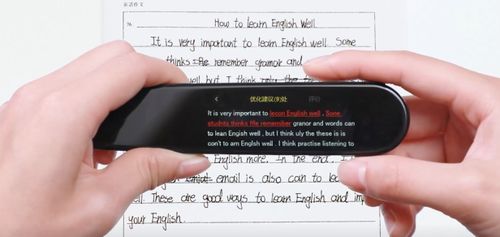 How to learn English Well.
It is very important to learn English well. Some
thinks the remember grammar and
well but I think only the
优化建议
It is very important to lecon English well . Some
studnts thinks Me remember granor and words can
to lean Engish well , but I think uly the these is is
con't to am Englsh well . I think practise listening to
English more. In the end. I
email is also can to lea
ll. These are good ways to learn English and im
your English.